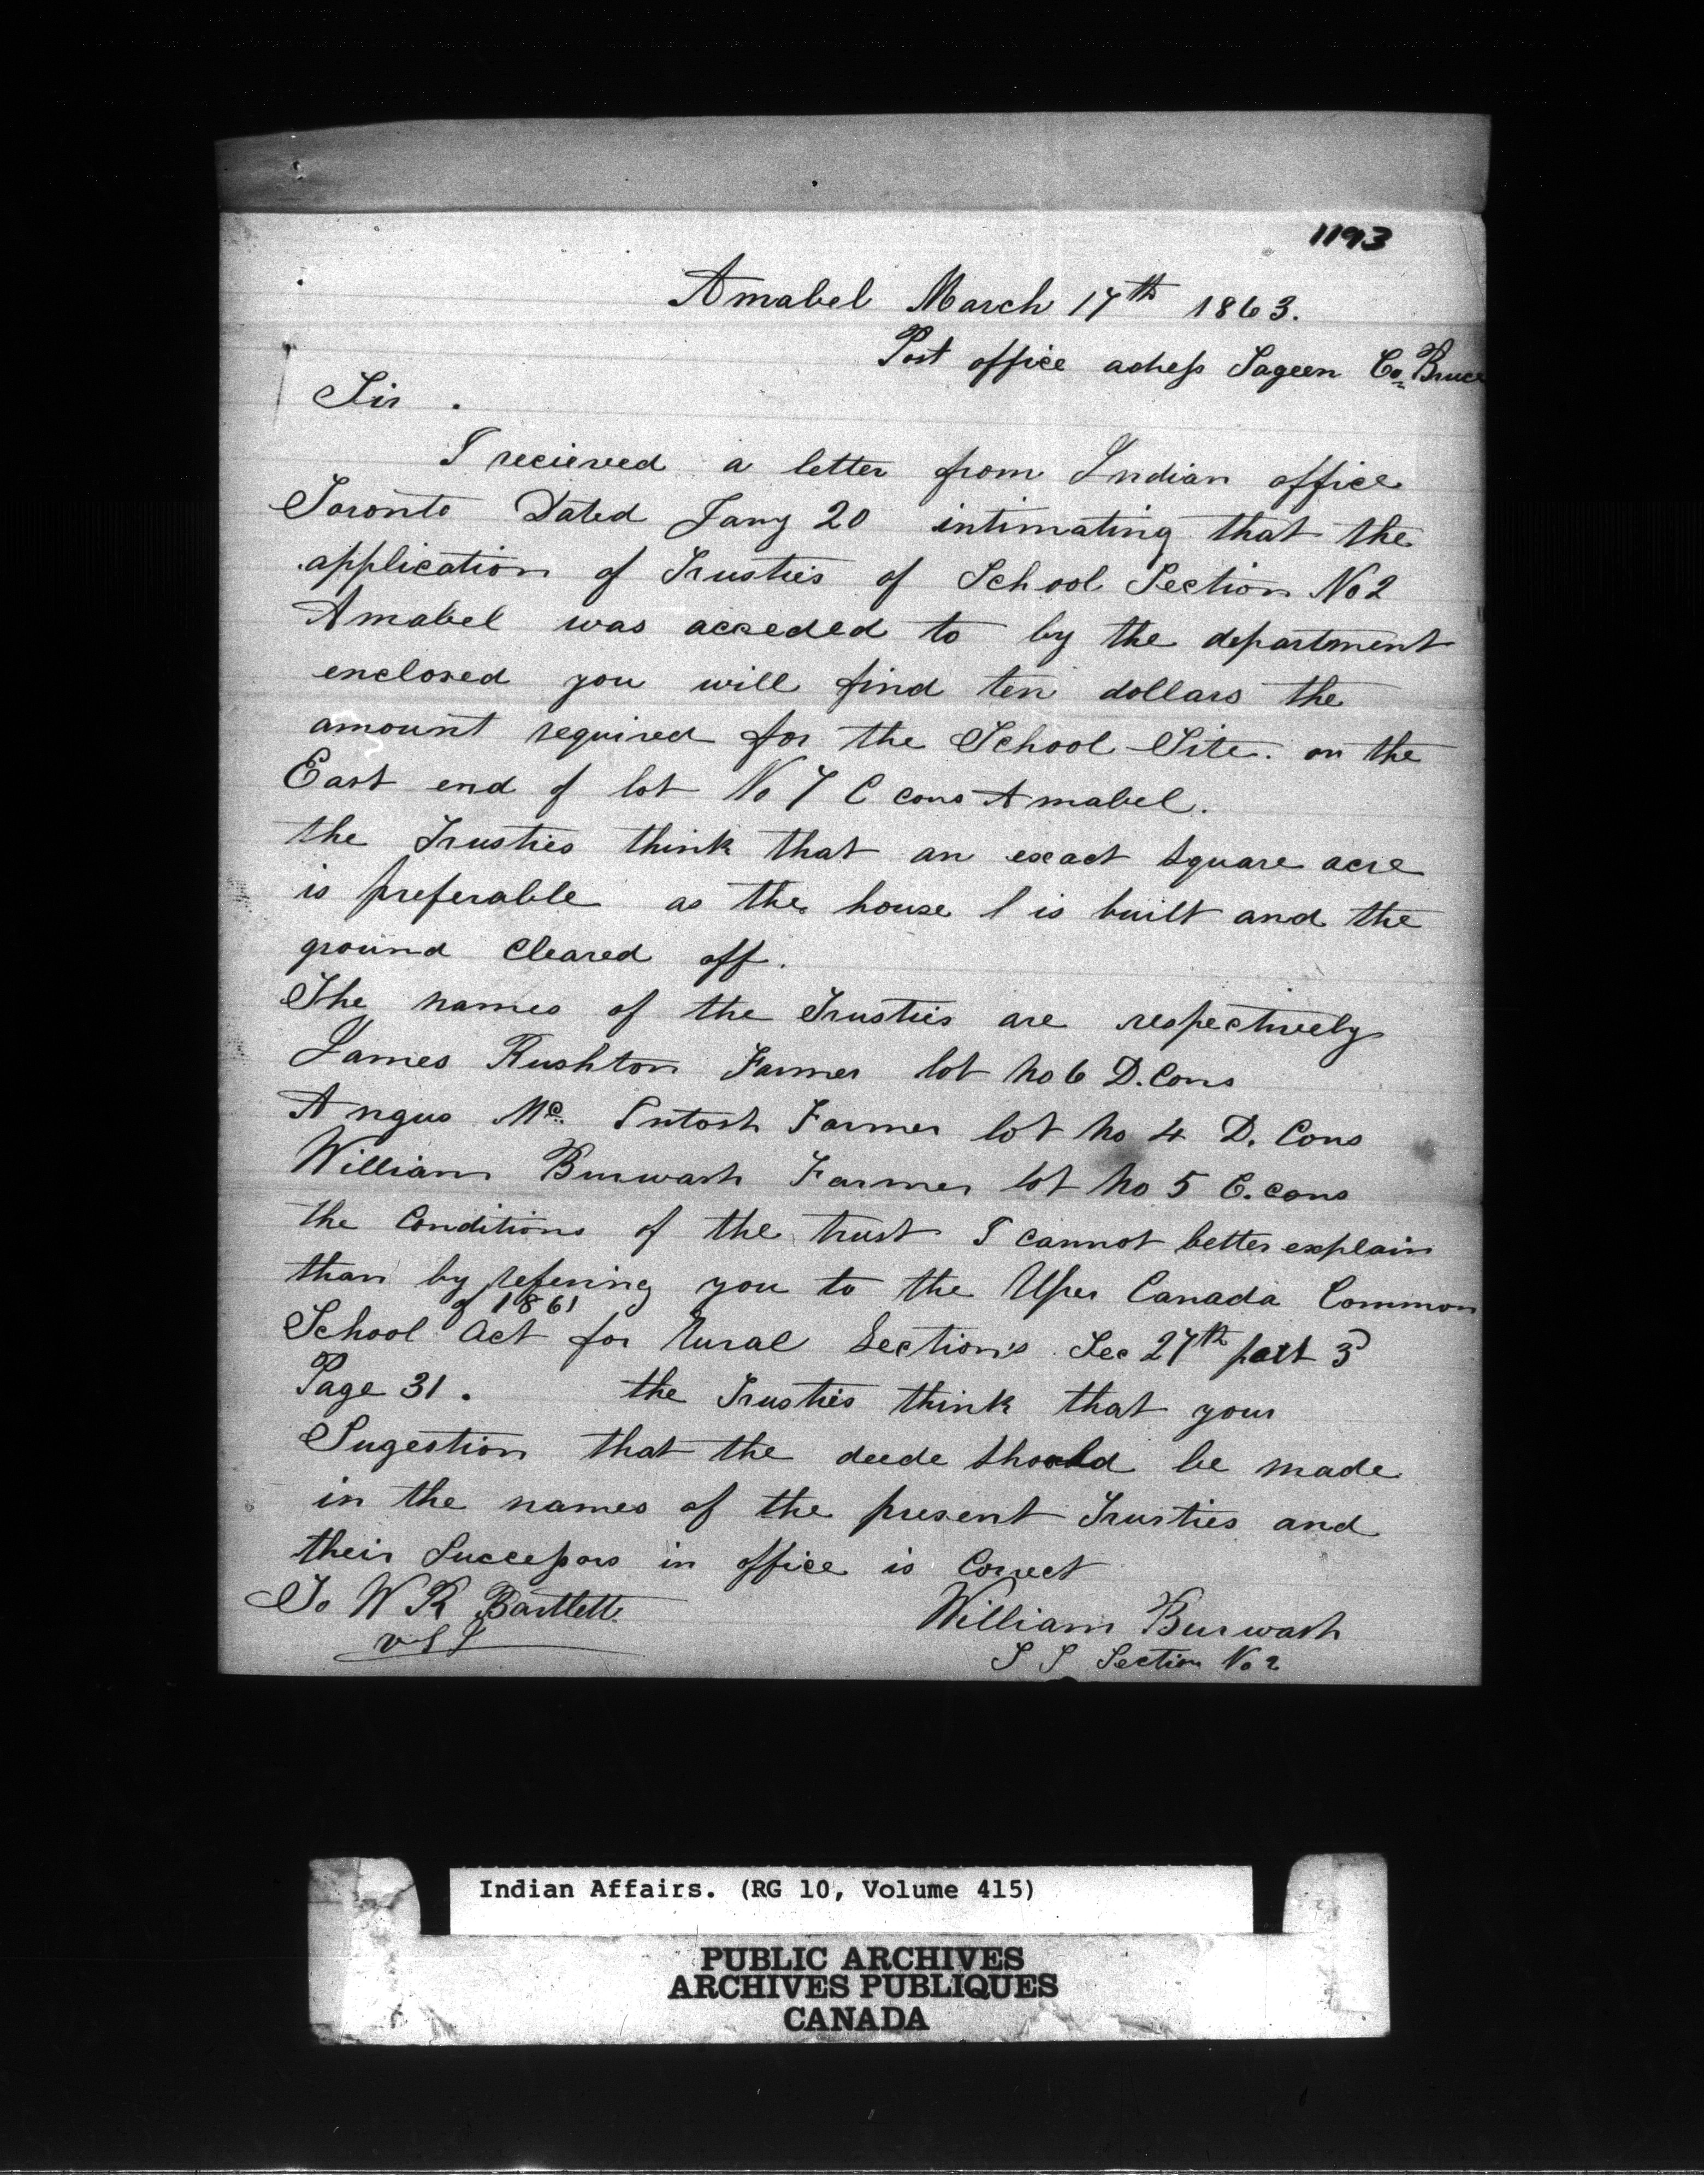 1193
Amabel March 17th 1863.
Post office adress Sageen Co. Bruce
Sir.
I recieved a letter from Indian office
Toronto Dated Jany 20 intimating that the
application of Trusties of School Section No 2
Amabel was acceded to by the department
enclosed you will find ten dollars the
amount required for the School Site. on the
East end of lot No 7 C cons Amabel.
the Trusties think that an exact square acre
is preferable as the house is built and the
ground Cleared off.
The names of the Trusties are respectively
James Rushton Farmer lot no 6 D. Cons
Angus Mc Intosh Farmer lot no 4 D. Cons
William Burwash Farmer lot no 5 C. cons
the Conditions of the trust I cannot better explain
than by refering you to the Upper Canada Common
School Act of 1861 for Rural Sections Sec 27th part 3
Page 31. the Trusties think that your
Sugestion that the deede should be made
in the names of the present Trusties and
their Successors in office is Correct
To W R Bartlett
William Burwash
S S Section No 2
Indian Affairs. (RG 10, Volume 415)
PUBLIC ARCHIVES
ARCHIVES PUBLIQUES
CANADA